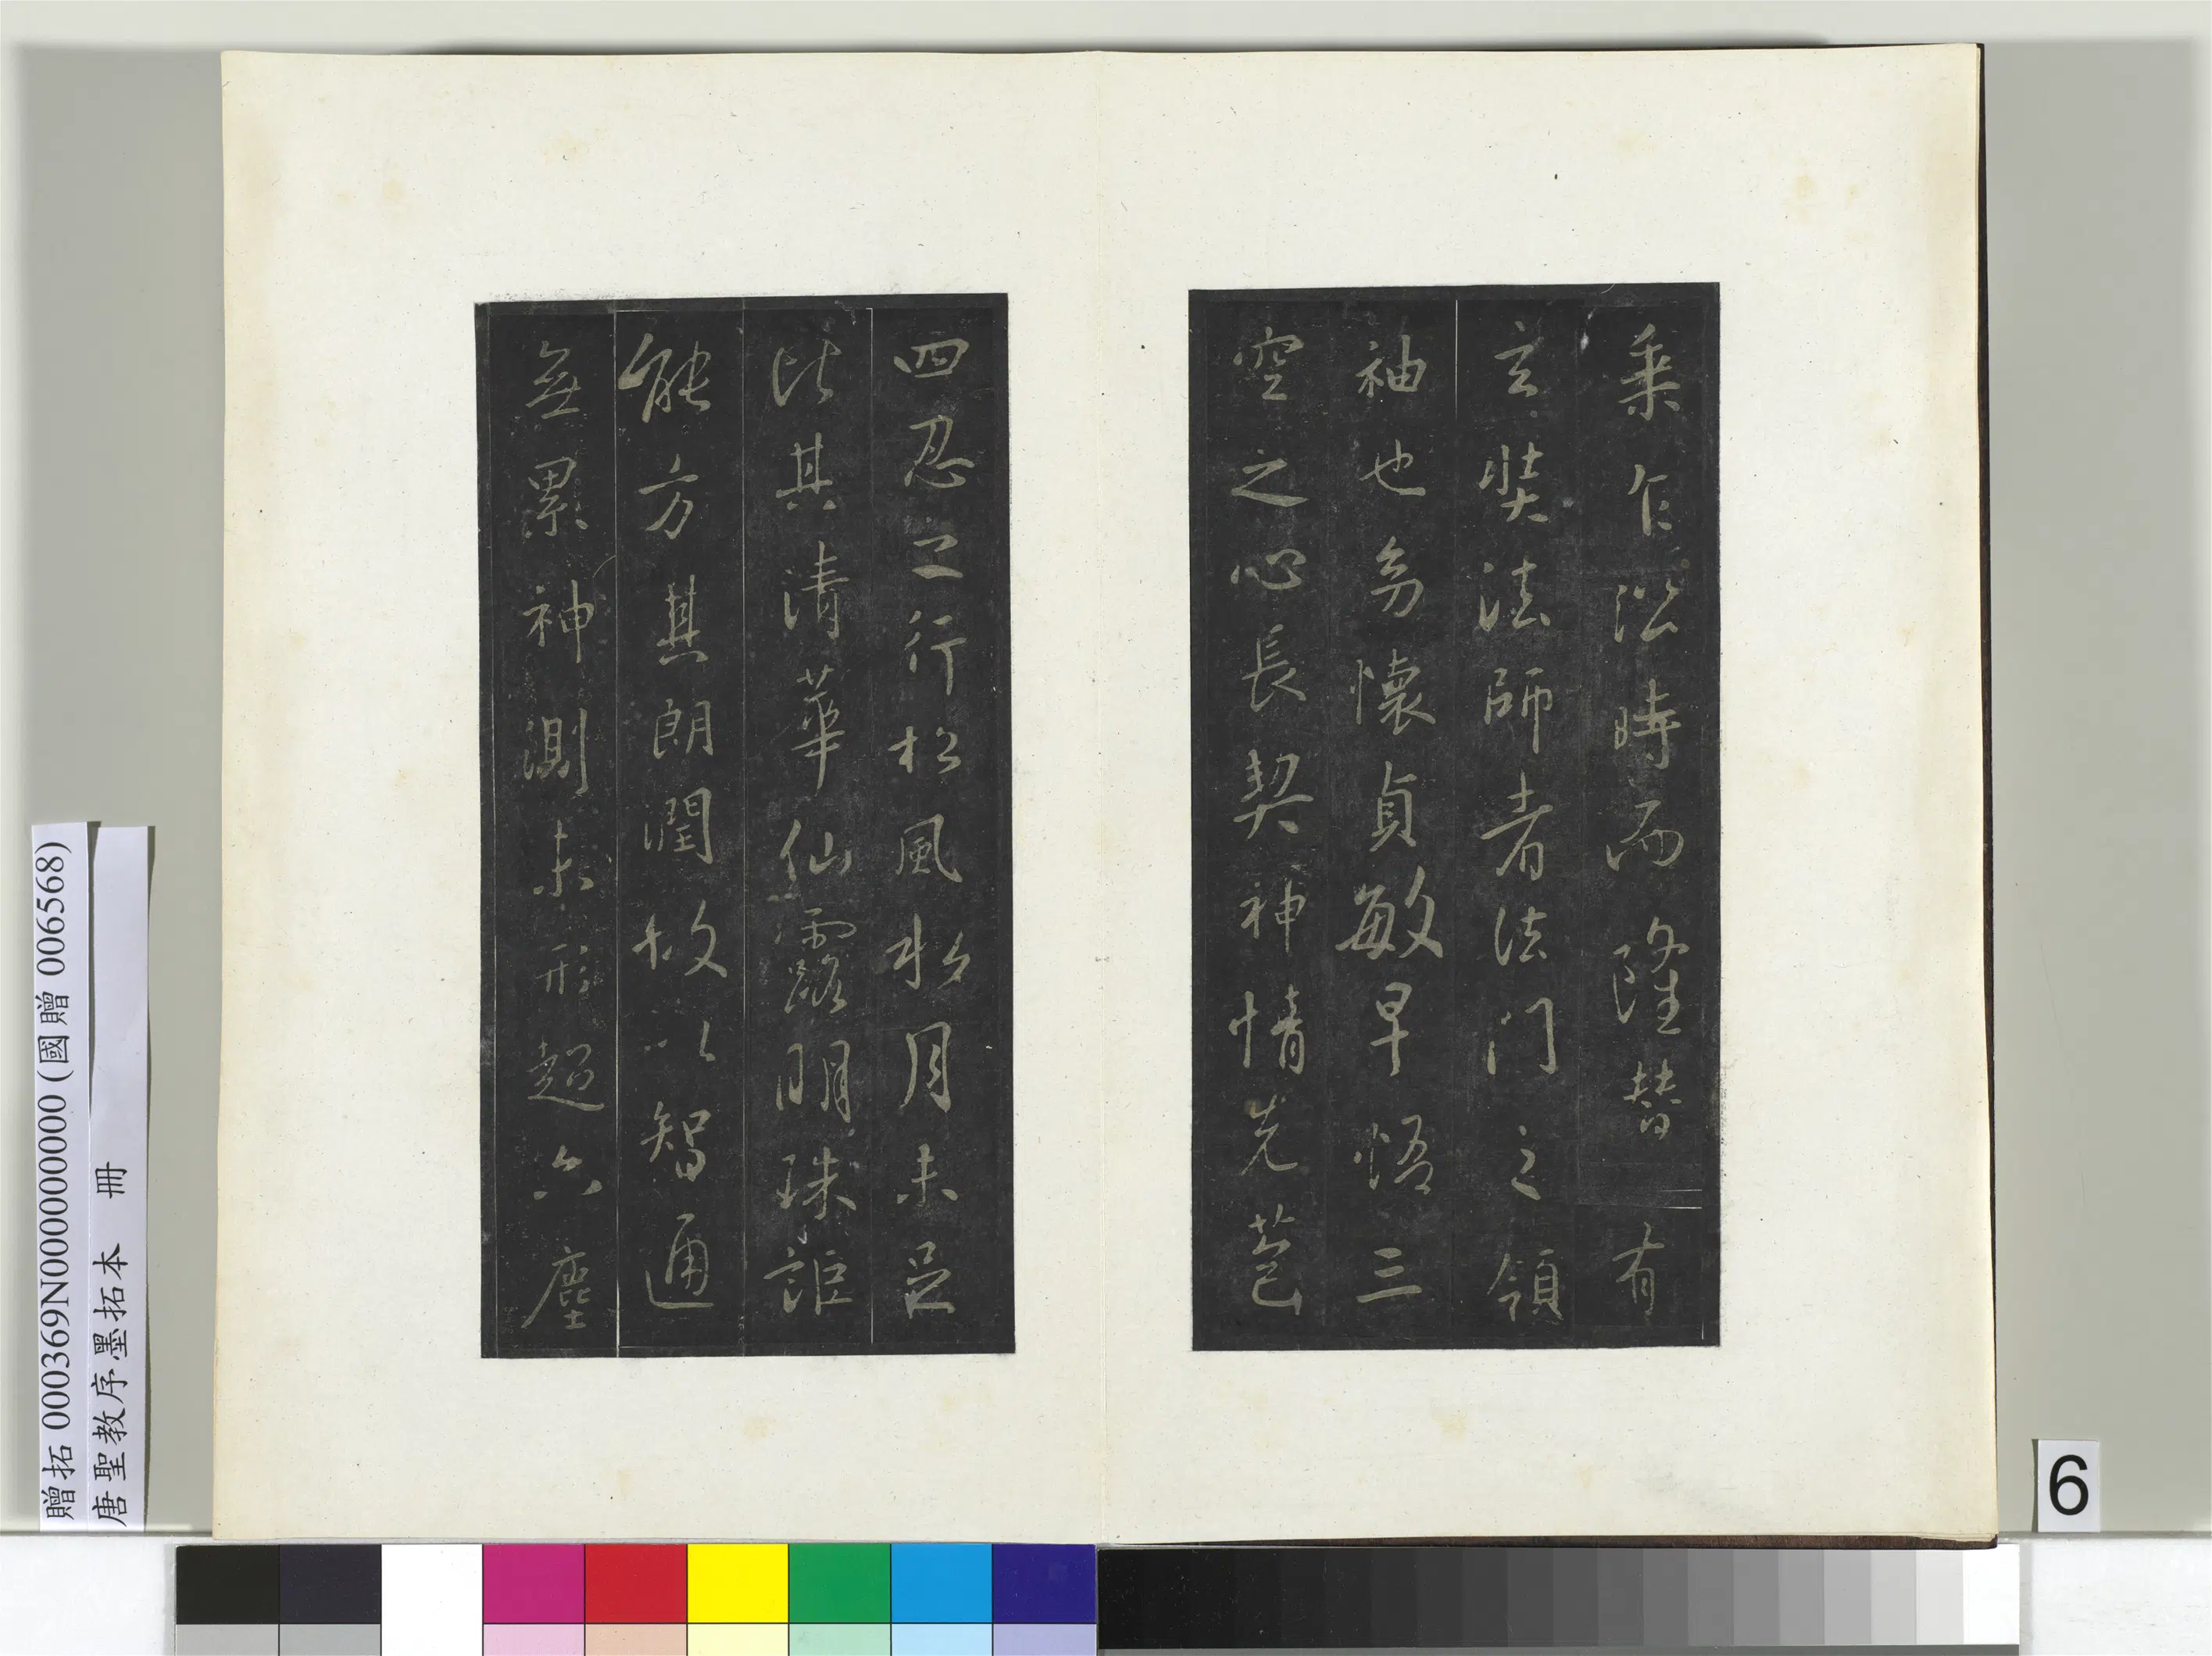 乗乍沿時而隆替有
玄奘法師者法門之領
袖也幼懷貞敏早悟三
空之心長契神情先苞
四忍之行松風水月未足
比其清華仙露明珠詎
能方其朗潤故以智通
無累神測未形超六塵
贈拓 000369N000000000 (國贈 006568)
唐聖教序墨拓本 冊
6